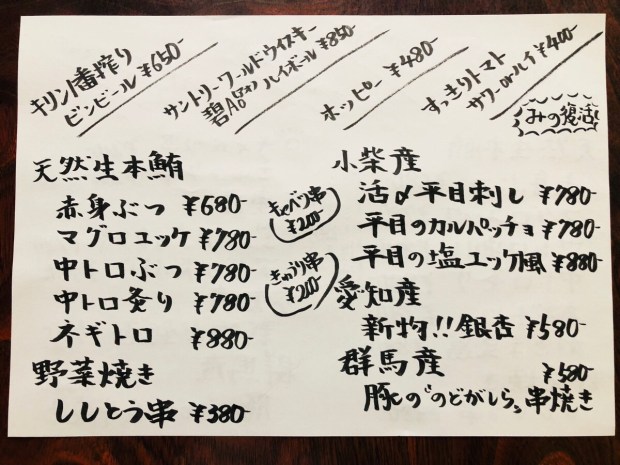 キリン一番搾り
ビンビール ¥650-
サントリーワールドウイスキー
碧Ao(アオ) ハイボール ¥850-
ホッピー ¥480-
すっきりトマト
サワー or ハイ ¥400-
みの復活
天然生本鮪
赤身ぶつ ¥680-
マグロユッケ ¥780-
中トロぶつ ¥780-
中トロ炙り ¥780-
ネギトロ ¥880-
野菜焼き
ししとう串 ¥380-
キャベツ串
¥200-
きゅうり串
¥200-
小柴産
活〆平目刺し ¥780-
平目のカルパッチョ ¥780-
平目の塩ユッケ風 ¥880-
愛知産
新物!!銀杏 ¥580-
群馬産
¥580-
豚の“のどがしら”串焼き